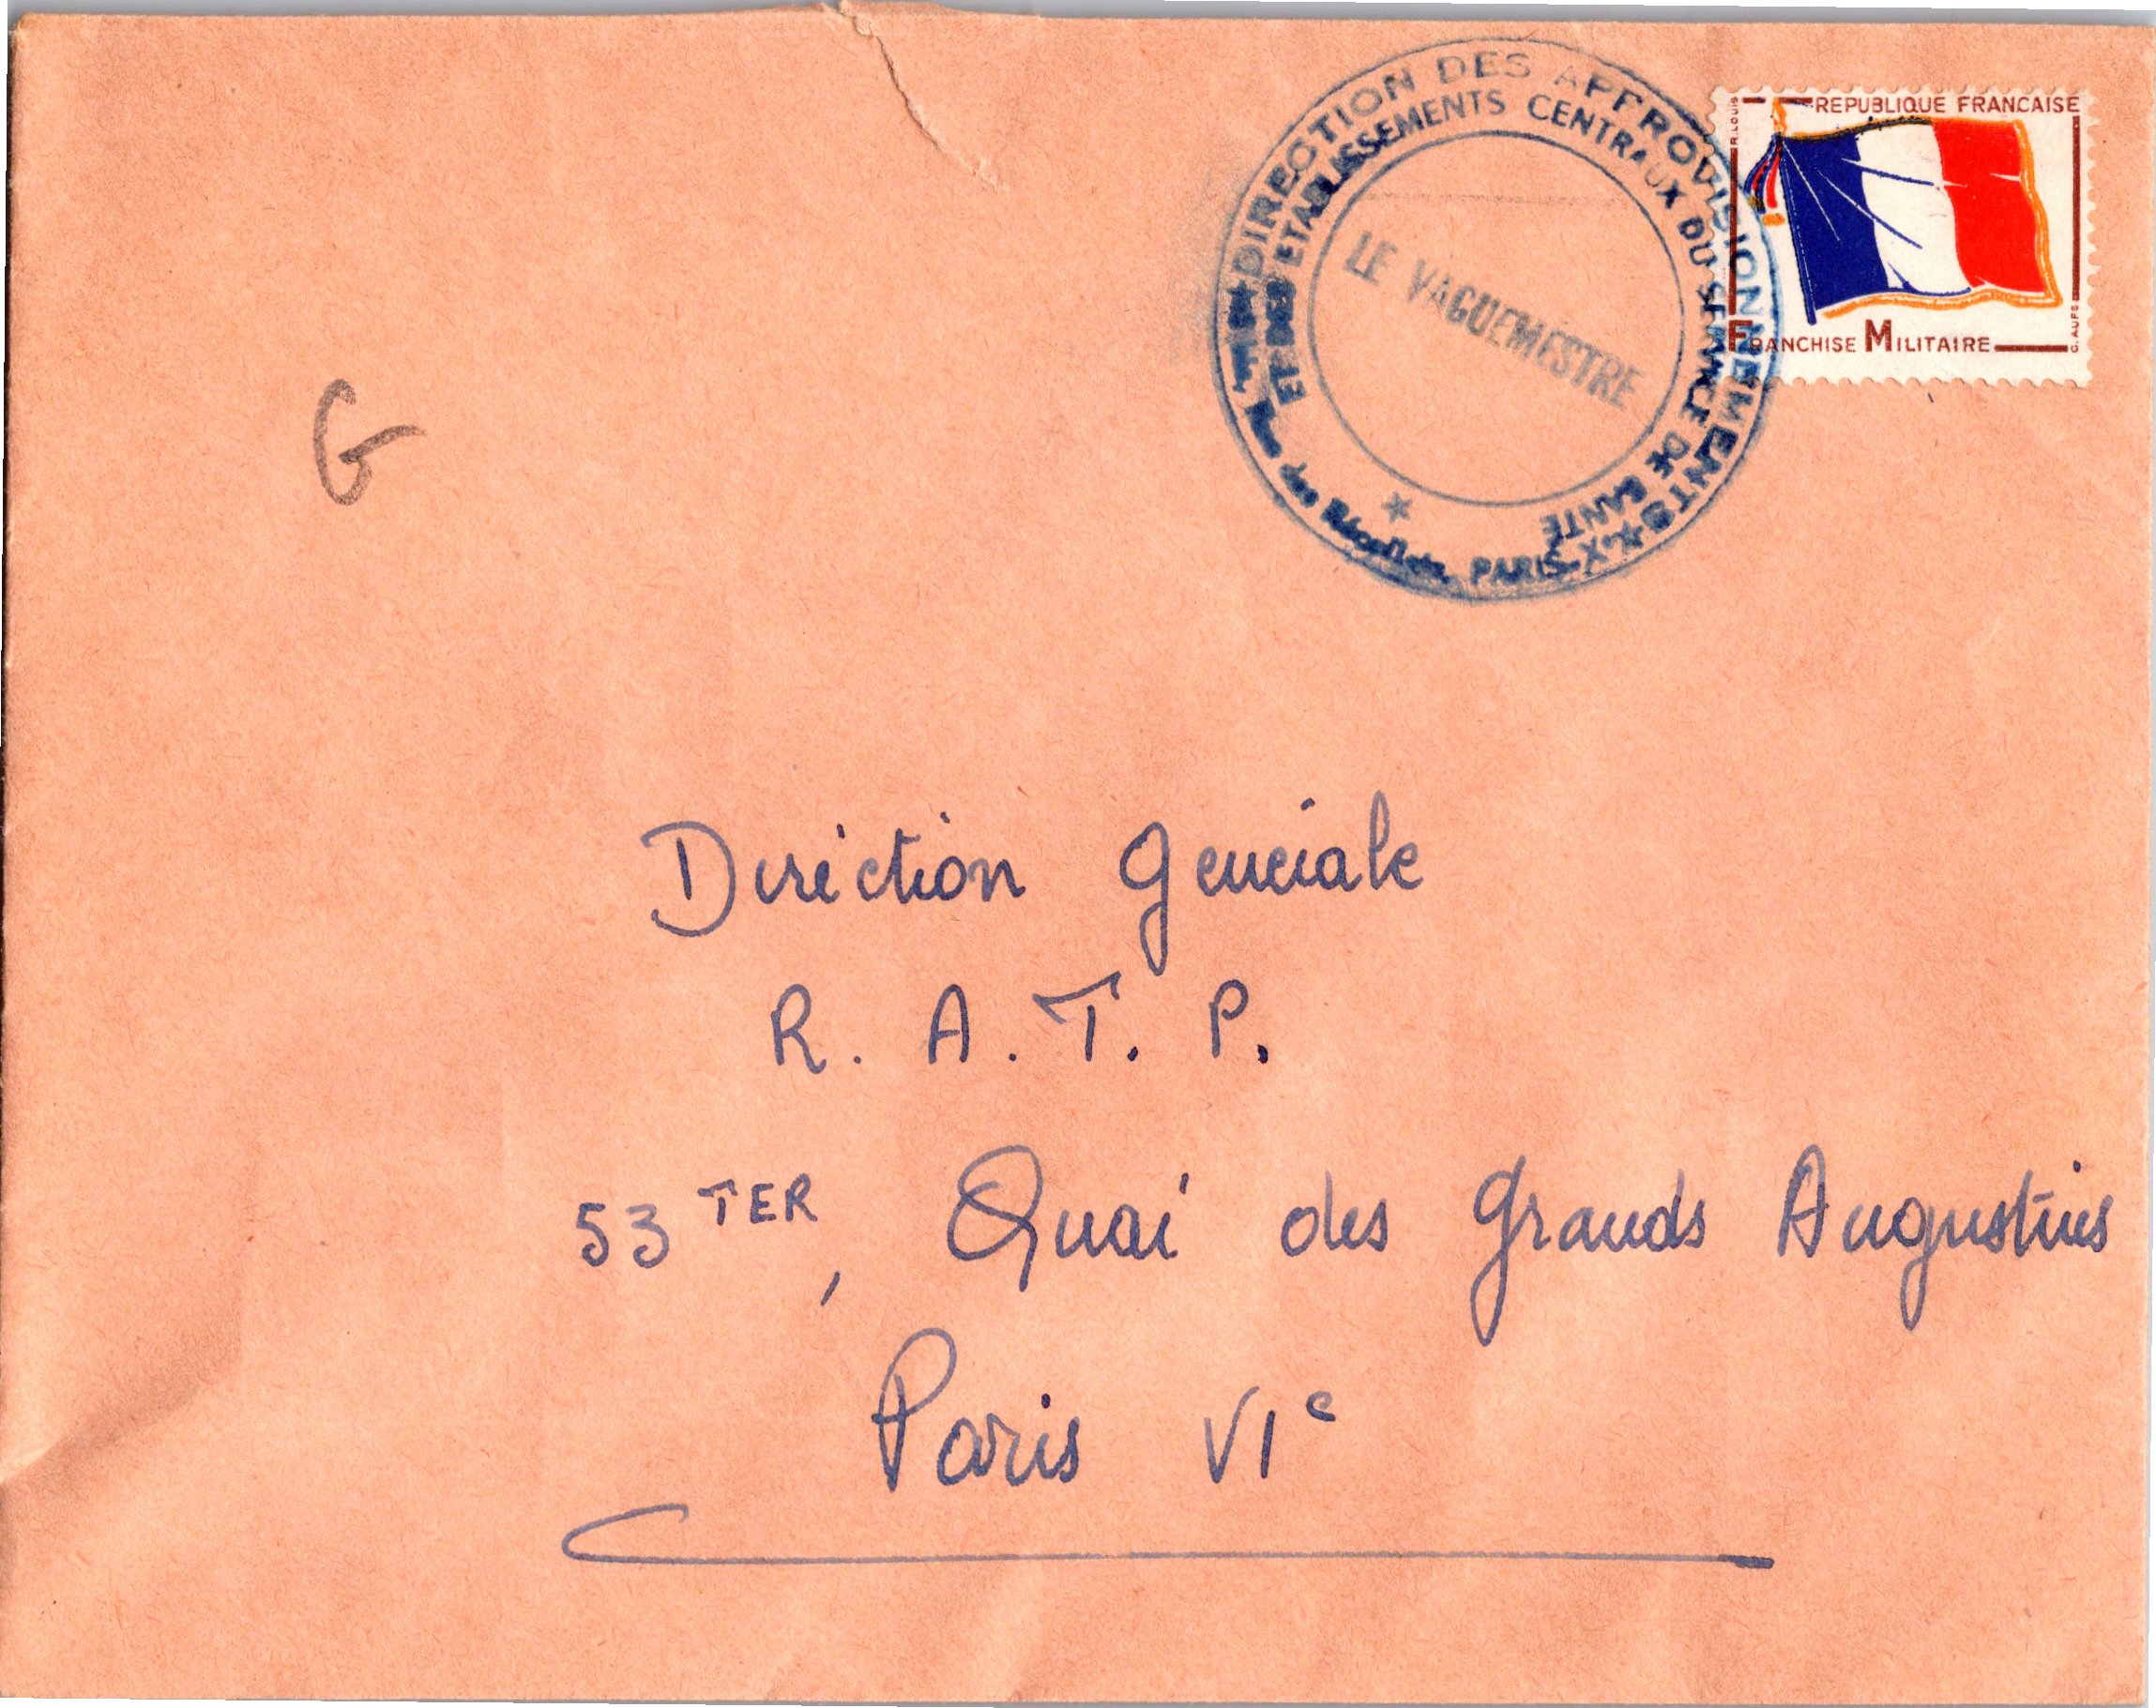 DIRECTION DES APPROVISIONNEMENTS
ET DES ETABLISSEMENTS CENTRAUX DU SERVICE DE SANTE
LE VAGUEMESTRE
des Récollets, PARIS-X
REPUBLIQUE FRANCAISE
R.LOUIS
G.AUFS
FRANCHISE MILITAIRE
G
Direction Generale
R. A. T. P.
53 TER, Quai des Grands Augustins
Paris VIe